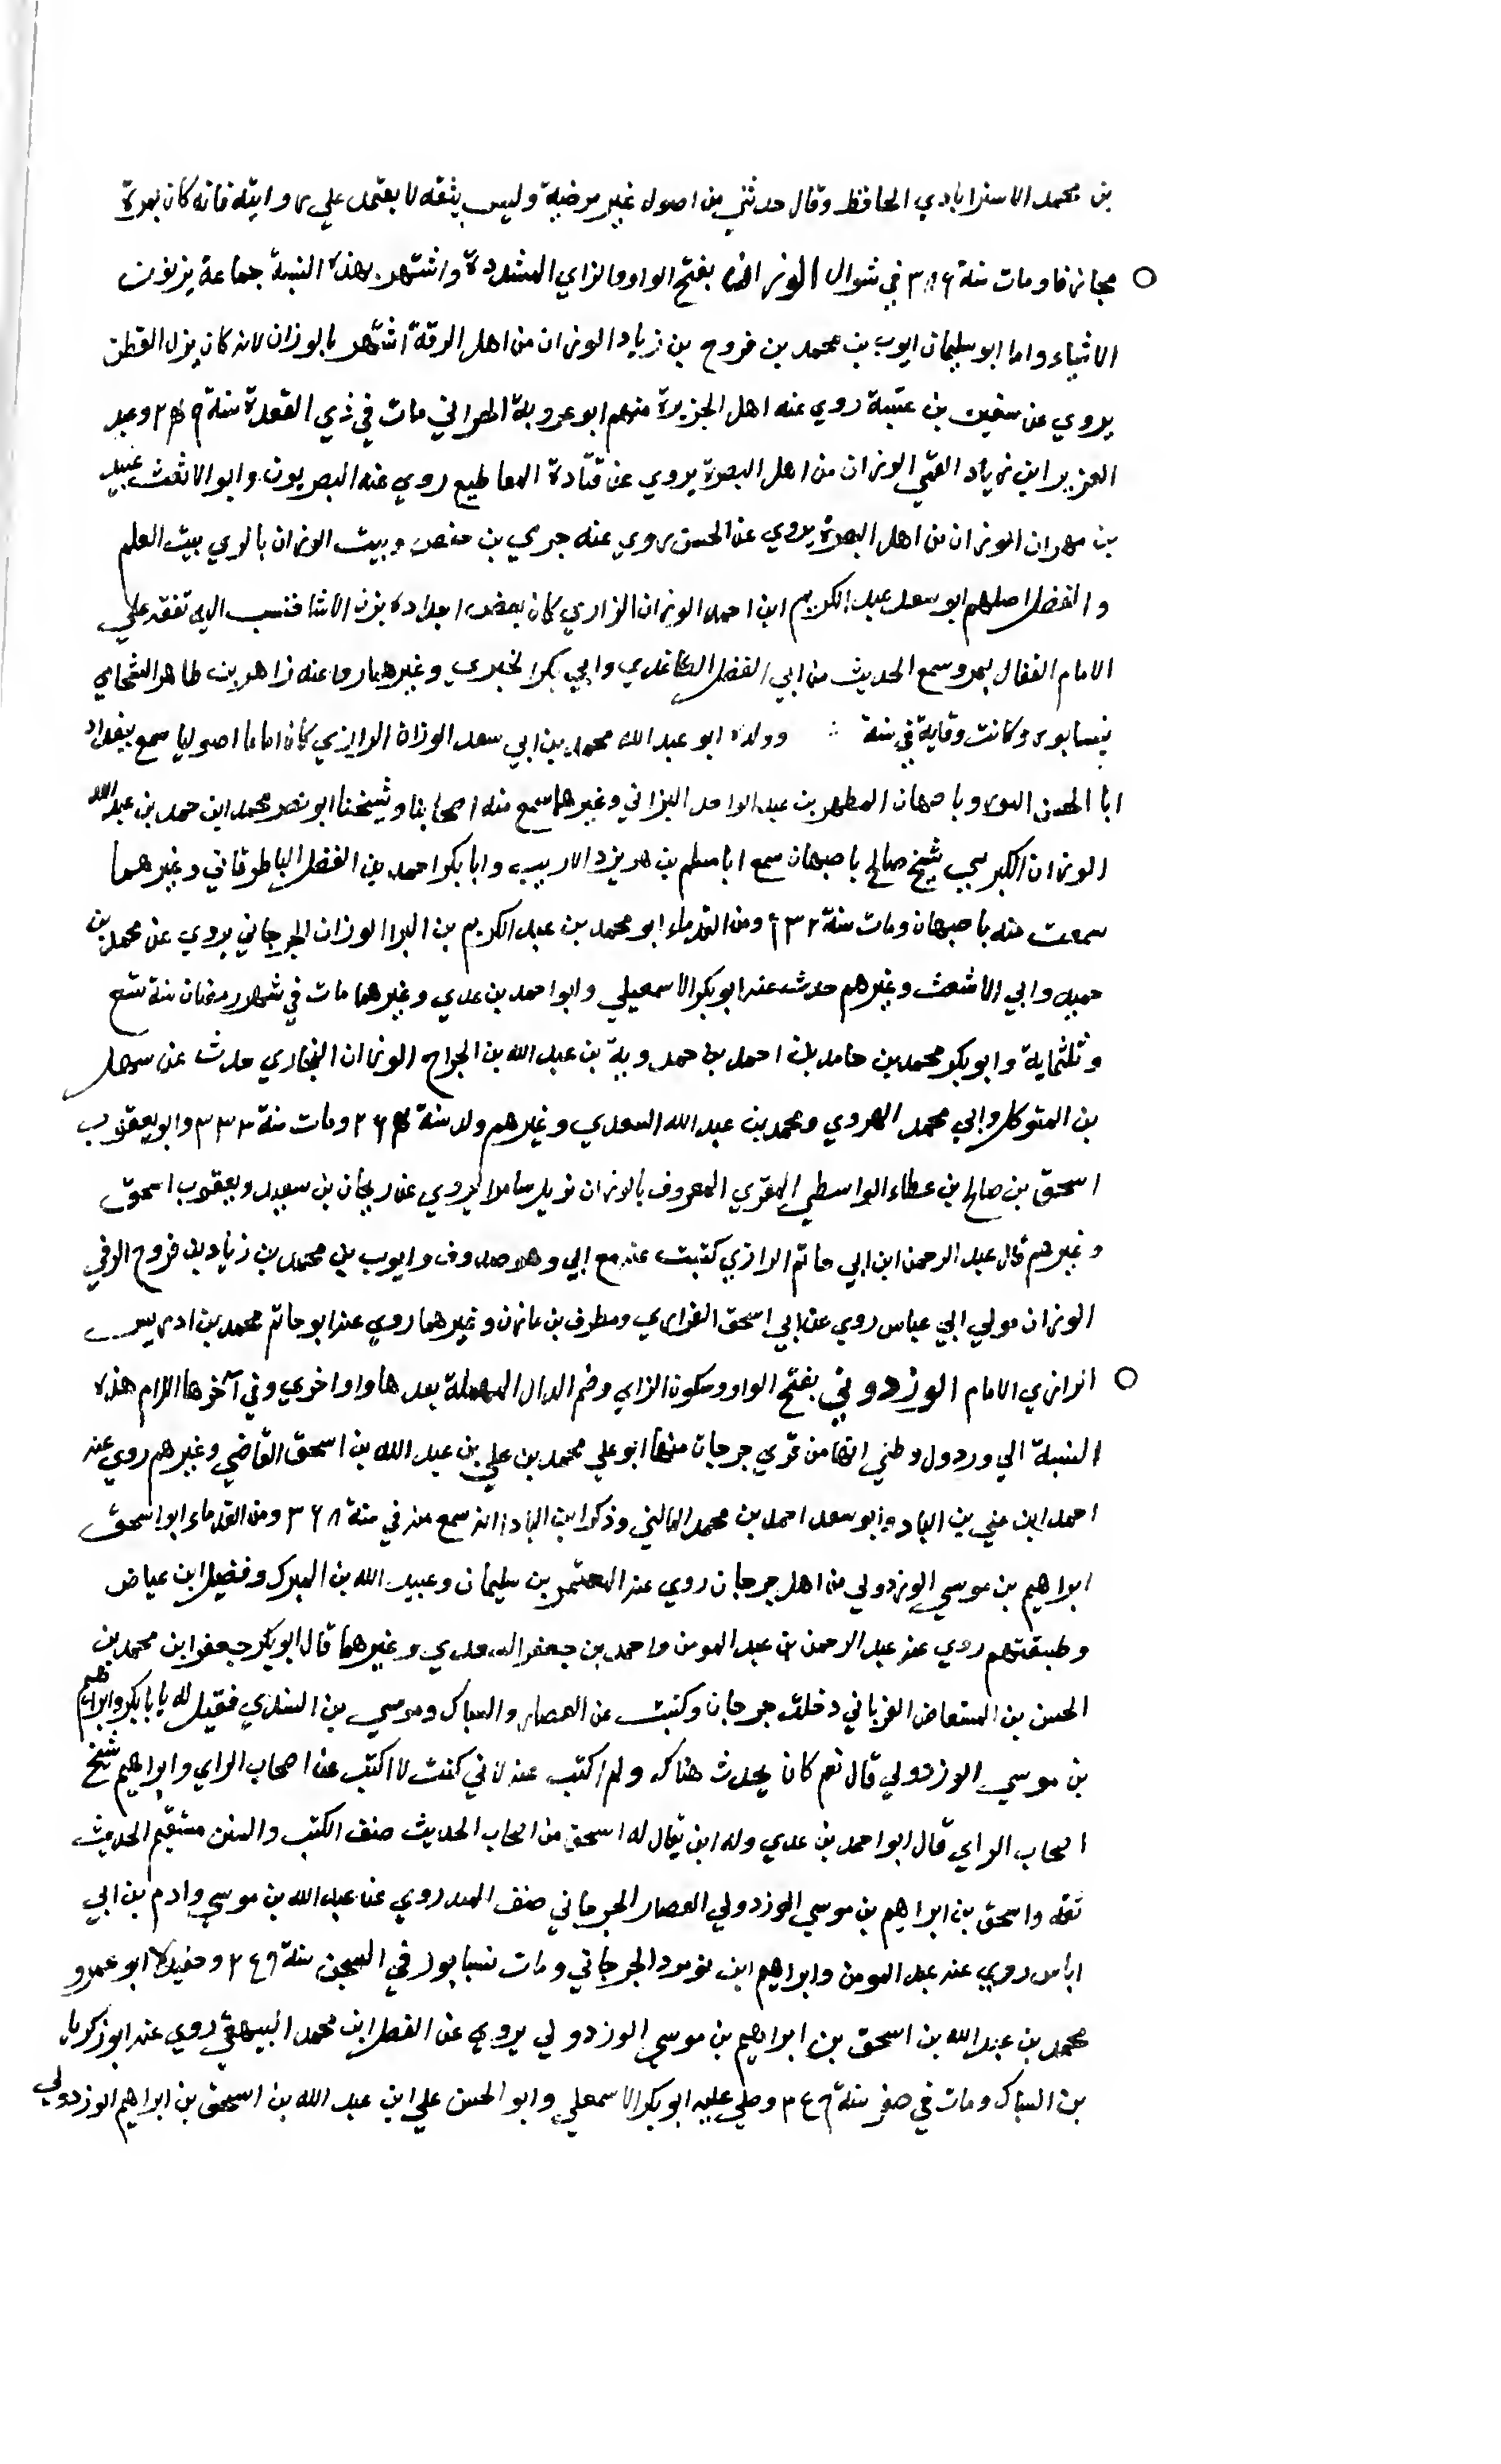 بن محمد الاسترابادي الحافظ وقال حدثني من اصول غير مرضية وليس بثقه لا يعتمد علي روايته فانه كان بمرة
مجازفا ومات سنة ٣٨٦ في شوال الوزان بفتح الواو والزاي المشددة واشتهر بهذه النسبة جماعة يزنون
الاشياء واما ابو سليمان ايوب بن محمد بن فروح بن زياد الوزان من اهل الرقة اشتهر بالوزان لانه كان يزل القطن
يروي عن سفين بن عتبة روي عنه اهل الجزيرة منهم ابو عروبة الحراني مات في ذي القعدة سنة ٢٥٩ وعبد
العزيز ابن زياد العتي الوزان من اهل البصرة يروي عن قتادة المعاطيع روي عنه البصريون وابو الاشعث عبيد
بن مهران الوزان من اهل البصرة يروي عن الحسن روي عنه جري بن حفص وبيت الوزان بالري بيت العلم
والفضل اصلهم ابو سعد عبد الكريم ابن احمد الوزان الزاري كان بعض اجداده يزن الاشا فنسب اليه تفقه علي
الامام القفال بمرو سمع الحديث من ابي الفضل الكاغدي وابي بكر الخيري وغيرهما روا عنه زاهر بن طاهر الشحامي
بنيسابور وكانت وفاته في سنة وولده ابو عبد الله محمد بن ابي سعد الوزان الرازي كان اماما اصوليا سمع ببغداد
ابا الحسن وباصبهان المطهر بن عبد الواحد البزاني وغيرهما سمع منه اصحابنا وشيخنا ابو نصر محمد ابن حمد بن عبد الله
الوزان الكبر شيخ صالح باصبهان سمع ابا مسلم بن هريزد الاديب وابا بكر احمد بن الفضل الباطرقاني وغيرهما
سمعت منه باصبهان ومات سنة ومن القدماء ابو محمد بن عبد الكريم بن البرا الوزان الجرجاني يروي عن محمد بن
حميد وابي الاشعث وغيرهم حدث عنه ابو بكر الاسمعيلي وابو احمد بن عدي وغيرهما مات في شهر رمضان سنة تسع
وثلثماية وابو بكر محمد بن حامد بن احمد بن حمدوية بن عبد الله بن الجراح الوزان البخاري حدث عن سهل
بن المتوكل وابي محمد الهروي ومحمد بن عبد الله السعدي وغيرهم ولد سنة ومات سنة ٣٣٣ وابو يعقوب
اسحق بن صالح بن عطاء الواسطي المقري المعروف بالوزان نزيل سامرا يروي عن ريحان بن سعيد ويعقوب اسحق
وغيرهم قال عبد الرحمن ابن ابي حاتم الرازي كتبت عنه مع ابي وهو صدوق وايوب بن محمد بن زياد بن فروح الرقي
الوزان مولي ابي عباس روي عن ابي اسحق الفزاري ومطرف بن مازن وغيرهما روي عنه ابو حاتم محمد بن ادريس
الرازي الامام الوزدولي بفتح الواو وسكون الزاي وضم الدال المهملة بعدها واو اخري وفي آخرها اللام هذه
النسبة الي وردول وظني انها من قري جرجان منها ابو علي محمد بن علي بن عبد الله بن اسحق القاضي وغيرهم روي عنه
احمد ابن مني بن الباد وابو سعد احمد بن محمد الماليني وذكر ابن الباد انه سمع منه في سنة ٣٦٨ ومن القدماء ابو اسحق
ابراهيم بن موسي الوزدولي من اهل جرجان روي عنه المعتمر بن سليمان وعبيد الله بن المبرك وفضيل ابن عياض
وطبقتهم روي عنه عبد الرحمن بن عبد المومن واحمد بن جعفر السعدي وغيرهما قال ابو بكر جعفر ابن محمد بن
الحسن بن المستعاض الفرياني دخلت جرجان وكتبت عن العصار والسباك وموسي بن السندي فقيل له يا بابكر وابراهيم
بن موسي الوزدولي قال نعم كان يحدث هناك ولم اكتب عنه لاني كنت لا اكتب عن اصحاب الراي وابراهيم شيخ
اصحاب الراي قال ابو احمد بن عدي وله ابن يقال له اسحق من اصحاب الحديث صنف الكتب والسنن مستقيم الحديث
ثقه واسحق بن ابراهيم بن موسي الوزدولي العصار الجرجاني صنف المسند روي عن عبد الله بن موسي وادم بن ابي
اياس روي عنه عبد المومن وابراهيم ابن نومرد الجرجاني ومات نسابور في السجن سنة ٢٤٩ وحفيده ابو عمرو
محمد بن عبد الله بن اسحق بن ابراهيم بن موسي الوزدولي يروي عن الفضل ابن محمد البيهقي روي عنه ابو زكريا
بن السباك ومات في صفر سنة ٣٤٩ وصلي عليه ابو بكر الاسمعلي وابو الحسن علي ابن عبد الله بن اسحق بن ابراهيم الوزدولي